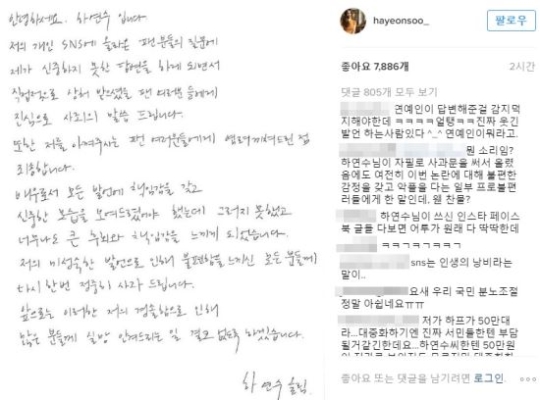 안녕하세요. 하연수 입니다
저의 개인 SNS에 올라온 팬분들의 질문에
제가 신중하지 못한 답변을 하게 되면서
직접적으로 상처 받으셨을 팬 여러분들에게
진심으로 사죄의 말씀 드립니다.
또한 저를 아껴주시는 팬 여러분들에게 염려끼쳐드린 점
죄송합니다.
배우로서 모든 발언에 책임감을 갖고
신중한 모습을 보여드렸어야 했는데 그러지 못했고
너무나도 큰 후회와 책임감을 느끼게 되었습니다.
저의 미성숙한 발언으로 인해 불편함을 느끼신 모든 분들께
다시 한번 정중히 사과 드립니다.
앞으로는 이러한 저의 경솔함으로 인해
많은 분들께 실망 안겨드리는 일 결코 없도록 하겠습니다.
하연수 올림.
hayeonsoo_
팔로우
좋아요 7,886개
2시간
댓글 805개 모두 보기
연예인이 답변해준걸 감지덕
지해야한데 ㅋㅋㅋㅋ얼탱ㅋㅋ진짜 웃긴
발언 하는사람있다 ^_^ 연예인이뭐라고.
뭔 소리임?
하연수님이 자필로 사과문을 써서 올렸
음에도 여전히 이번 논란에 대해 불편한
감정을 갖고 악플을 다는 일부 프로불편
러들에게 한 말인데. 웬 찬물?
하연수님이 쓰신 인스타 페이스
북 글들 다보면 어투가 원래 다 딱딱한데
ㅋㅋㄱㅋㄱㅋㄱ
sns는 인생의 낭비라는
말이..
요새 우리 국민 분노조절
정말 아쉽네요ㅠㅠ
저가 하프가 50만대
라...대중화하기엔 진짜 서민들한텐 부담
될거같긴한데요..하연수씨한텐 50만원
좋아요 또는 댓글을 남기려면 로그인.